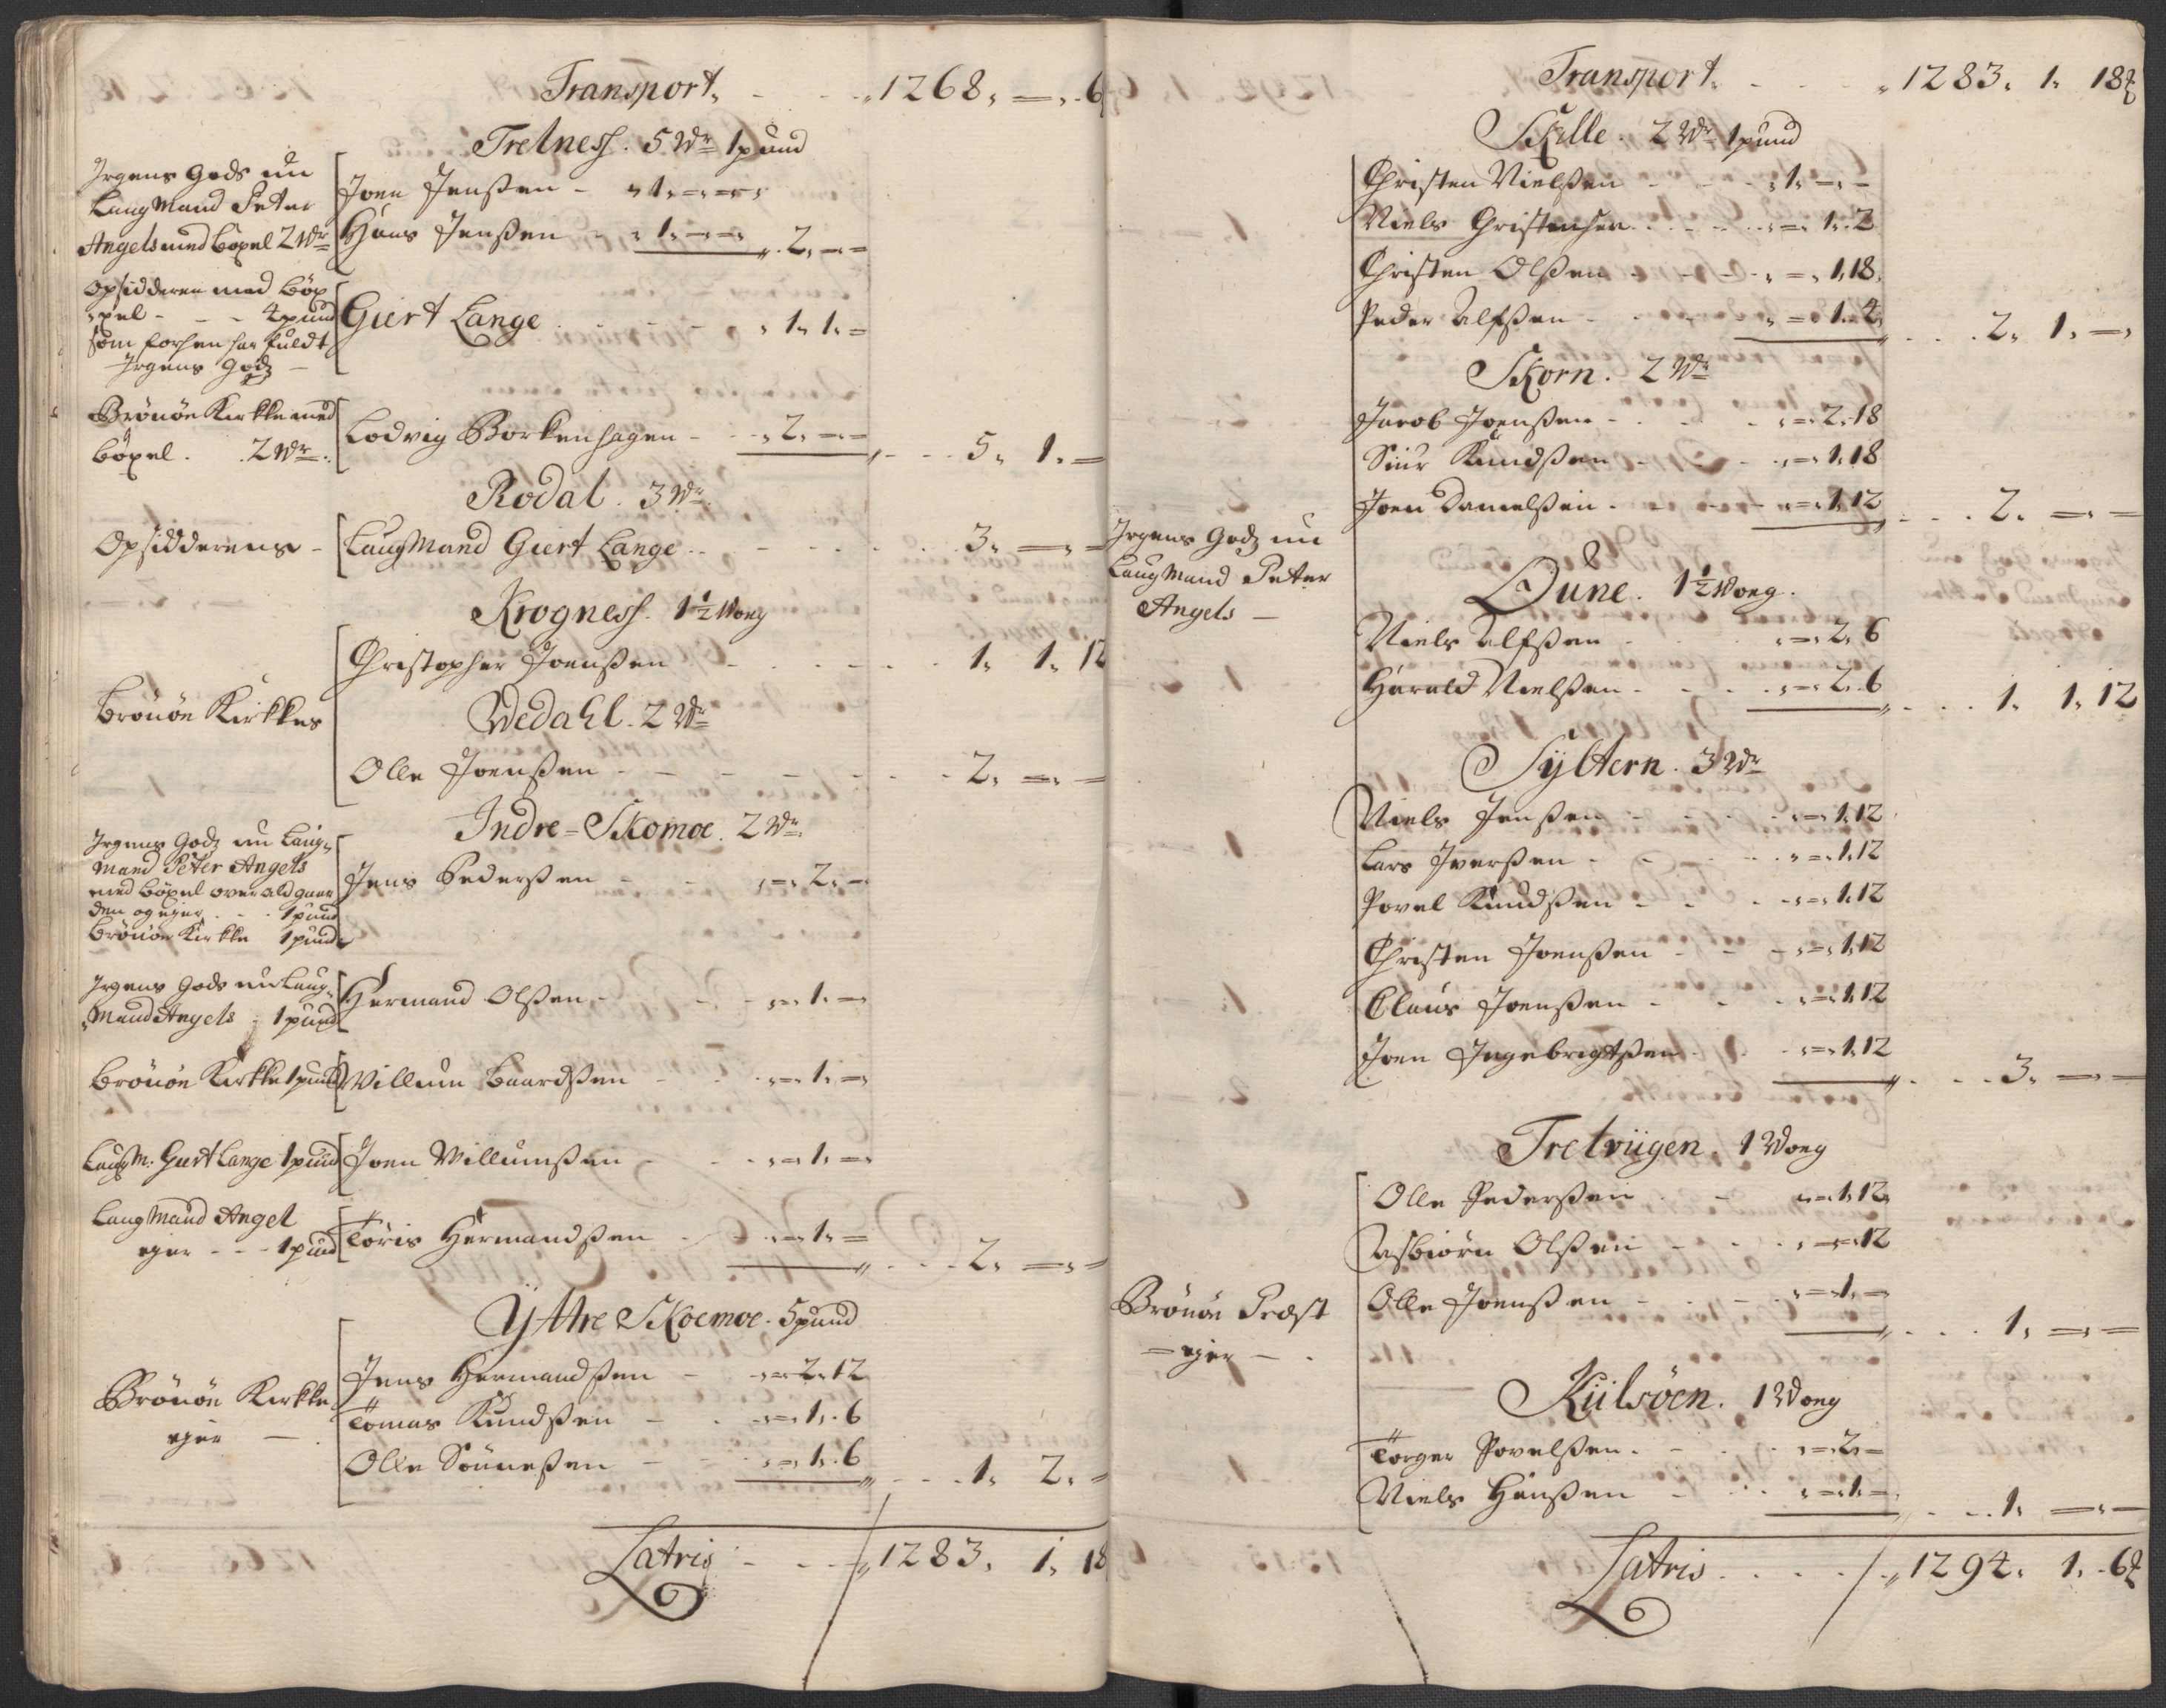 Transport. - - - „1268„ =„ 6
Tretness. 5 Wr 1 pund
Jrgens Gods nu
LaugMand Peter
Angels med böxel 2 Wr
Joen Jenßen - „1„ =„ =„
Hans Jenßen - „1„ =„ =„ „2„ =„ =
Opsidderen med böx
„xel - - - 4 pund
som forhen har fuldt
Jrgens Godz -
Giert Lange - - - „1„ 1„ =
Brönöe Kirkke med
böxel. 2 Wr.
Lodvig Borkenhagen - - „2„ =„ =
„ - - - 5„ 1„ =
Rodal. 3 Wr.
Opsidderens -
LaugMand Giert Lange - - - - 3„ =„ =
Krogness. 1½ Woeg
Christopher Joenßen - - - - 1„ 1„ 12
Brönöe Kirkkes
Wedahl. 2 Wr
Olle Joenßen - - - - 2„ =„ =
Indre=Skomoe. 2 Wr.
Jrgens Godz nu Laug„
Mand Peter Angels
med böxel over ald gaar
den og ejer - - 1 pund
Brönöe Kirkke 1 pund
Jens Pederßen - - „=„ 2„ =
Jrgens Gods nu Laug„
Mand Angels - 1 pund
Hermand Olßen - - „=„ 1„ =
Brönöe Kirkke 1 pund
Willum Baardßen - - „=„ 1„ =
LaugM: Giert Lange 1 pund
Joen Willumßen - - „=„ 1„ =
LaugMand Angel
ejer - - - 1 pund
Töris Hermandßen - - „=„ 1„ =
„ - - - 2„ =„ =
Ÿttre Skoemoe. 5 pund
Brönöe Kirkke
ejer -
Jens Hermandßen - „=„ 2„ 12
Tomas Knudßen - - „=„ 1„ 6
Olle Sönneßen - - „=„ 1„ 6
„ - - - 1„ 2„ =
Latris - - - „1283„ 1„ 18
Transport. - - - „1283„ 1„ 18
Skille. 2 Wr 1 pund
Christen Nielßen - - - „1„ =„ =
Niels Christensen - - - „=„ 1„ 2
Christen Olßen - - - „=„ 1„ 18„
Peder Alfßen - - - „=„ 1„ 4„
„ - - - 2„ 1„ =„
Skorn. 2 Wr
Jacob Joenßen - - - „=„ 2„ 18
Siur Knudßen - - - „=„ 1„ 18
Joen Danielßen - - - „=„ 1„ 12
„ - - - 2„ =„ =
Jrgens Godz nu
LaugMand Peter
Angels -
Dune. 1½ Woeg.
Niels Alfßen - - „=„ 2„ 6
Harald Nielßen - - - „=„ 2„ 6
„ - - - 1„ 1„ 12
Syltern. 3 Wr
Niels Jenßen - - - „=„ 1„ 12
Lars Iverßen - - - „=„ 1„ 12
Povel Knudßen - - - „=„ 1„ 12
Christen Joenßen - - - „=„ 1„ 12
Claus Joenßen - - - „=„ 1„ 12
Joen Ingebrigtßen - - „=„ 1„ 12
„ - - - 3„ =„ =
Tretviigen. 1 Woeg
Olle Pederßen - - „=„ 1„ 12„
Asbiörn Olßen - - - „=„ =„ 12
Olle Joenßen - - - „=„ 1„ =
Brönöe Præst
= ejer - .
„ - - - 1„ =„ =
Kiilsöen. 1 Woeg
Törger Povelßen - - - „=„ 2„ =
Niels Hanßen - - - „=„ 1„ =
„ - - - 1„ =„ =
Latris - - - - „1294„ 1„ 6